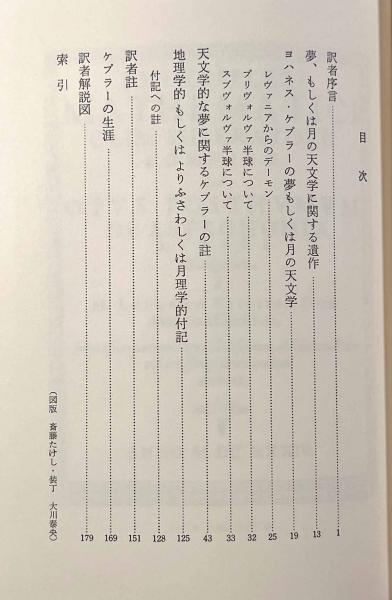 目次
訳者序言 1
夢、もしくは月の天文学に関する遺作 13
ヨハネス・ケプラーの夢もしくは月の天文学 19
レヴァニアからのデーモン 25
プリヴォルヴァ半球について 32
スブヴォルヴァ半球について 33
天文学的な夢に関するケプラーの註 43
地理学的 もしくは よりふさわしくは月理学的付記 125
付記への註 128
訳者註 151
ケプラーの生涯 169
訳者解説図 179
索引
(図版 斎藤たけし・装丁 大川泰央)